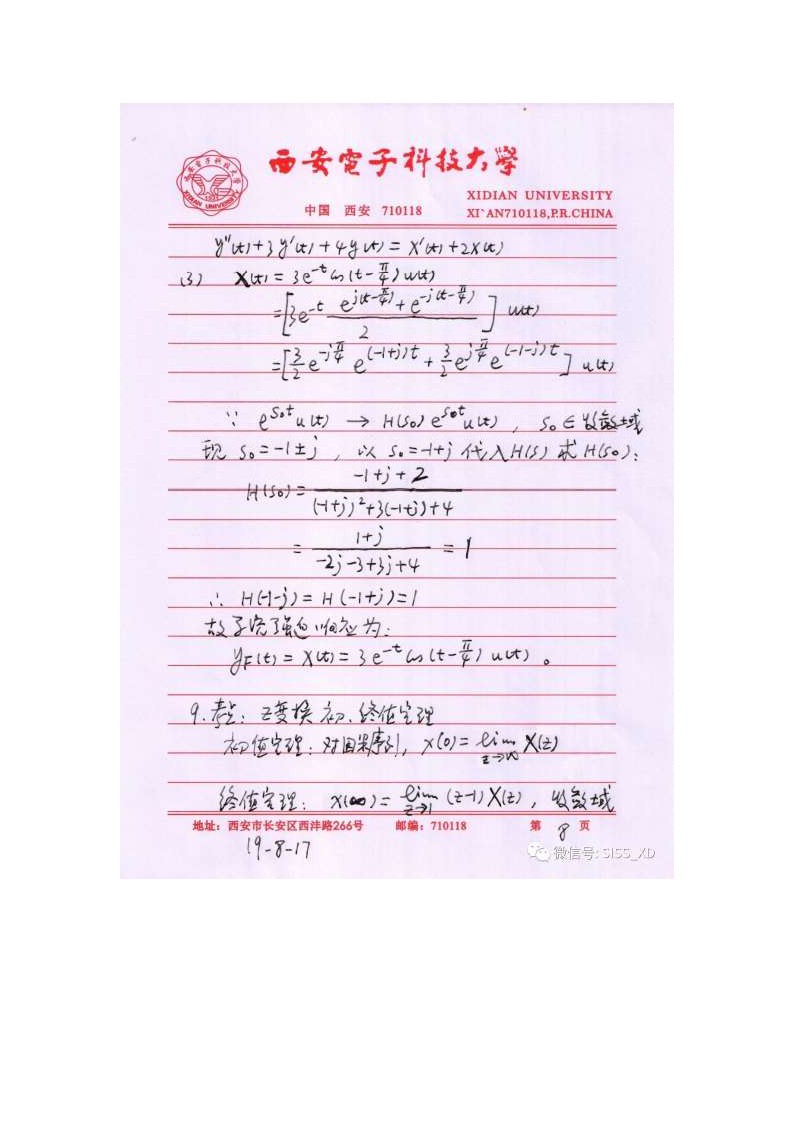 西安电子科技大学
XIDIAN UNIVERSITY
中国 西安 710118
XI`AN710118,P.R.CHINA
y''(t)+3y'(t)+4y(t) = x'(t)+2x(t)
(3) x(t) = 3e^{-t}cos(t-π/4)u(t)
=[3e^{-t} (e^{j(t-π/4)}+e^{-j(t-π/4)})/2] u(t)
=[3/2 e^{-jπ/4} e^{(-1+j)t} + 3/2 e^{jπ/4} e^{(-1-j)t}] u(t)
∵ e^{s₀t}u(t) → H(s₀)e^{s₀t}u(t), s₀∈收敛域
现 s₀=-1±j, 以 s₀=-1+j 代入H(s) 求 H(s₀):
H(s₀) = (-1+j+2)/((-1+j)²+3(-1+j)+4)
= (1+j)/(-2j-3+3j+4) = 1
∴ H(-1-j) = H(-1+j)=1
故系统强迫响应为:
y_F(t) = x(t) = 3e^{-t}cos(t-π/4)u(t)。
9.考点: Z变换初、终值定理
初值定理: 对因果序列, x(0) = lim_{z→∞} X(z)
终值定理: x(∞) = lim_{z→1} (z-1)X(z), 收敛域
地址:西安市长安区西沣路266号 邮编:710118 第 8 页
19-8-17
微信号: SISS_XD